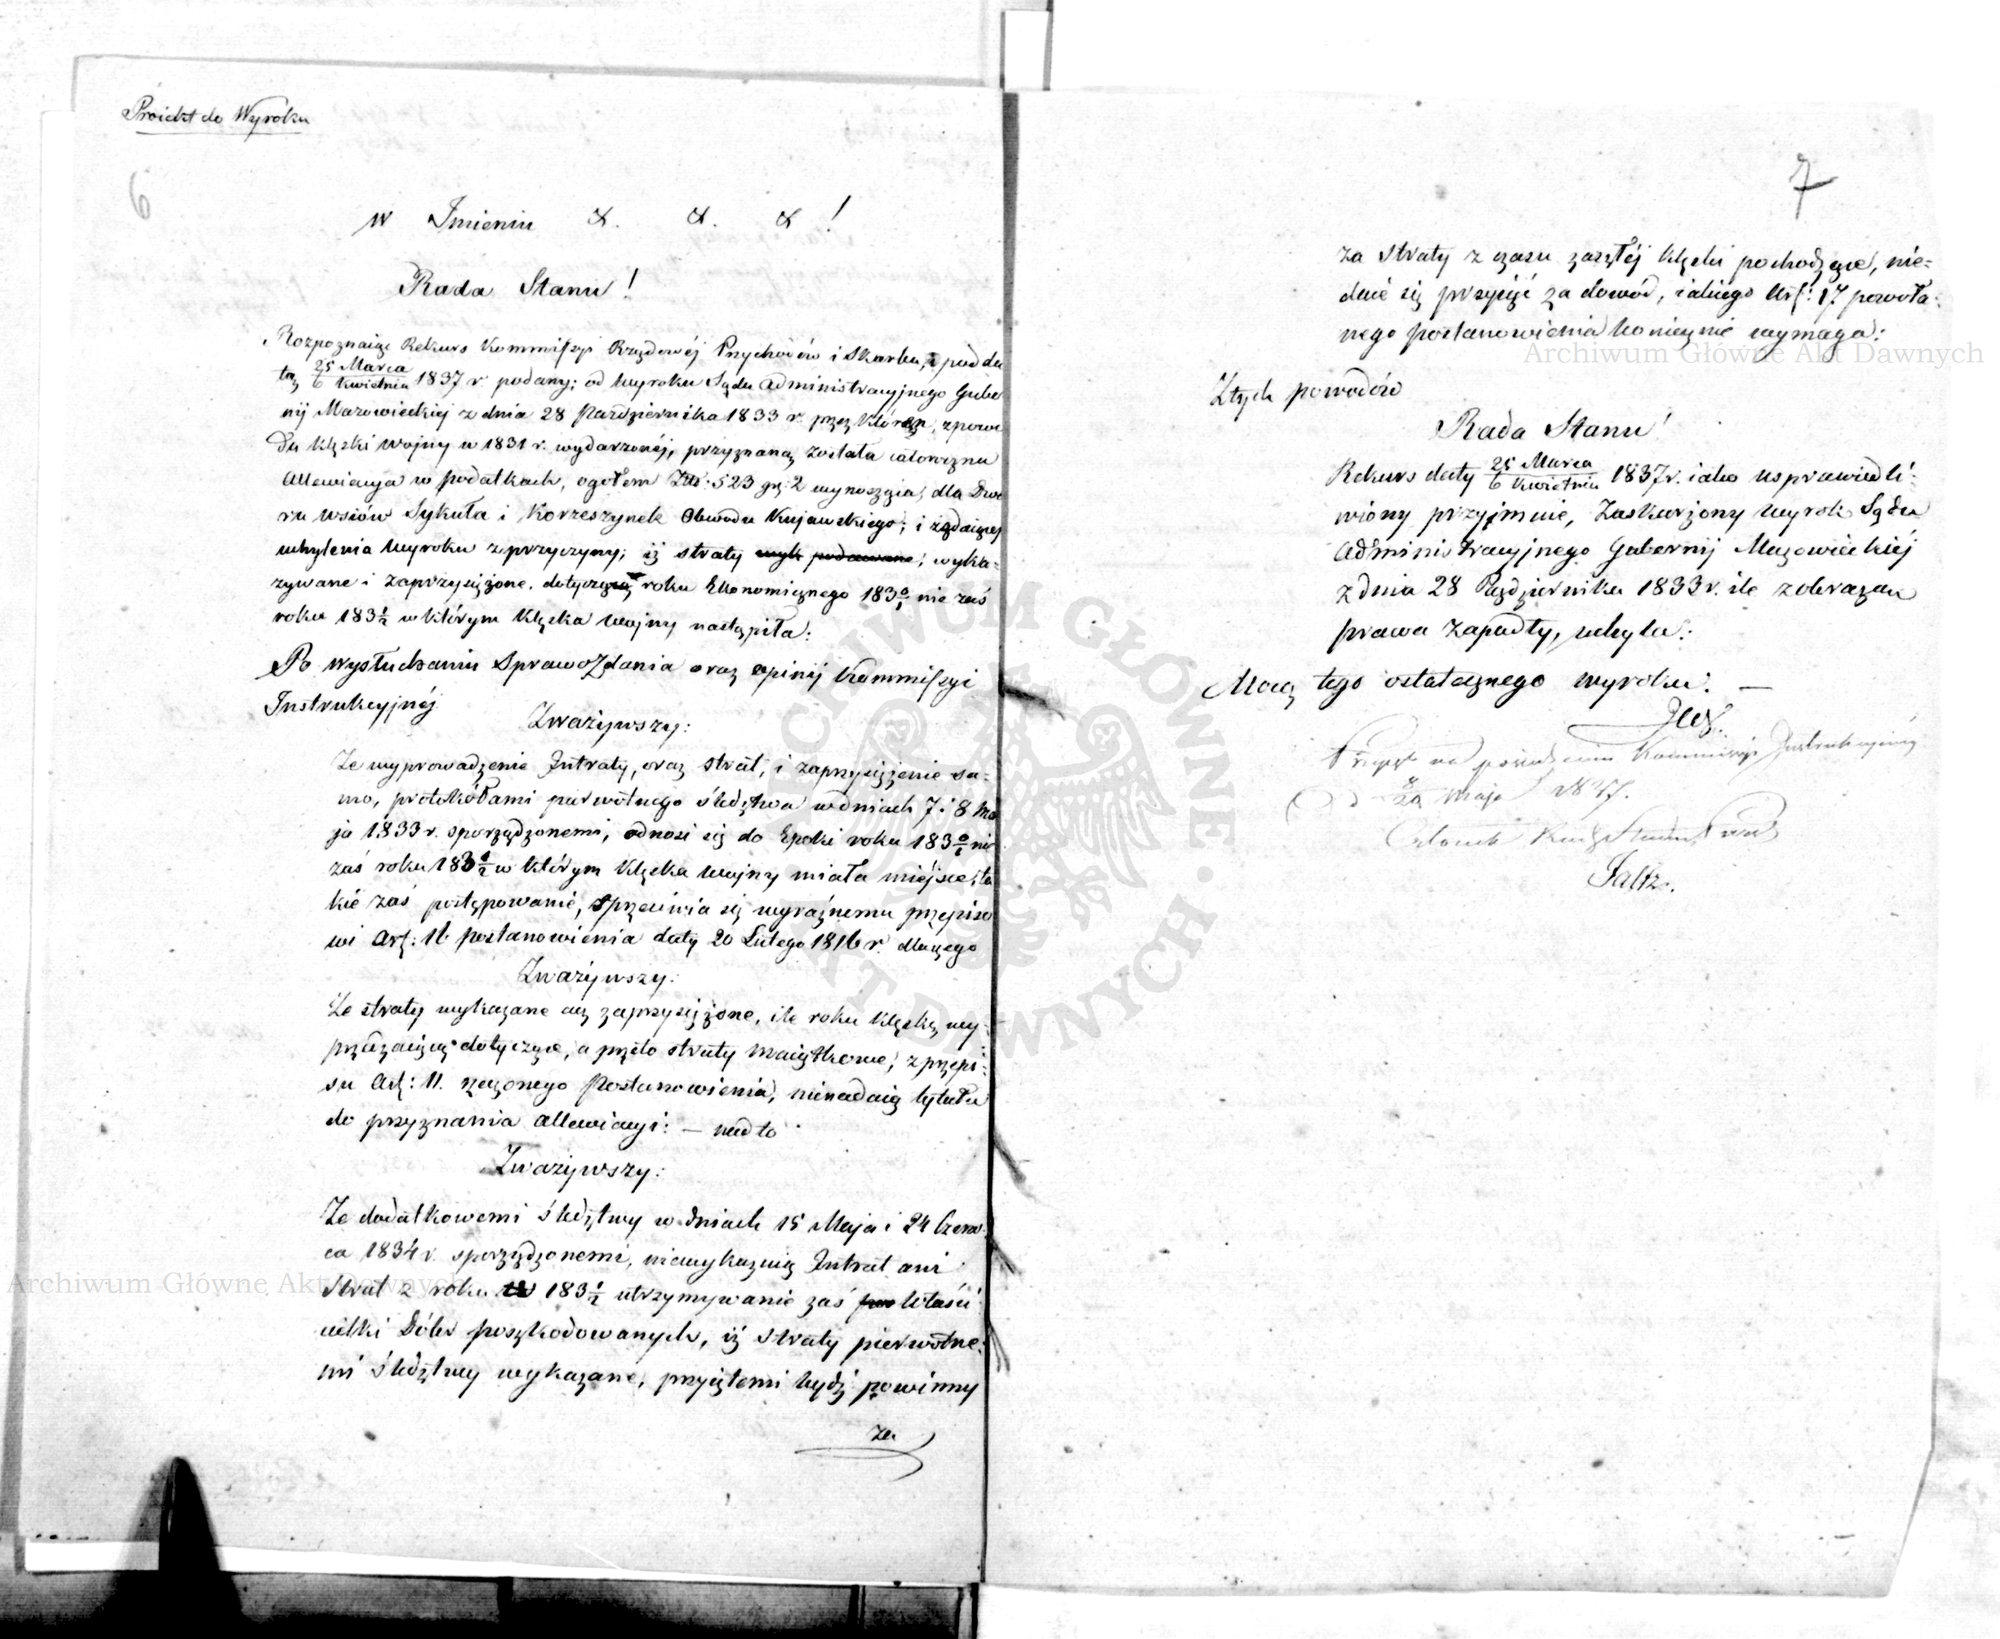 Proiekt do Wyroku
6
W Imieniu &. &. & !
Rada Stanu !
Rozpoznaiąc Rekurs Kommissyi Rządowéj Przychodów i Skarbu, pod da
tą 25 Marca / 6 Kwietnia 1837 r. podany; od Wyroku Sądu Administracyjnego Gube
nij Mazowieckiéj z dnia 28 Października 1833 r. przez który, z powo
du klęski Wojny w 1831 r. wydarzonéj, przyznaną została całoroczna
Allewiacya w podatkach, ogółem Złt: 523 gr: 2 wynosząca, dla Dwo
ru wsiów Sykuła i Korzeszynek Obwodu Kujawskiego; i żądaiącej
uchylenia Wyroku z przyczyny; iż straty wyk podawane; wyka-
zywane i zaprzysiężone, dotyczą roku Ekonomicznego 183 0/1 nie zaś
roku 183 1/2 w którym Klęska Wojny nastąpiła:
Po wysłuchaniu Sprawozdania oraz opinij Kommissyi
Instrukcyjnéj
Zważywszy:
Że wyprowadzenie Intraty, oraz strat, i zaprzysiężenie sa-
mo, protokółami pierwotnego śledztwa w dniach 7. i 8 Ma
ja 1833 r. sporządzonemi, odnosi się do Epoki roku 183 0/1 nie
zaś roku 183 1/2 w którym Klęska Wojny miała miéjsce, ta
kie zaś postępowanie, sprzeciwia się wyraźnemu przepiso
wi Art: 16 postanowienia daty 20 Lutego 1816 r. dlaczego
Zważywszy:
Że straty wykazane acz zaprzysiężone, ile roku klęskę wy-
przedzaiącą dotyczące, a przeto straty maiątkowe, z przepi-
su Art: 11. rzeczonego Postanowienia, nienadaią tytułu
do przyznania allewiacyi: — nadto
Zważywszy:
Że dodatkowemi śledztwy w dniach 15 Maja i 24 Czerw-
ca 1834 r. sporządzonemi, niewykazuią Intrat ani
Strat z roku 183 1/2 utrzymywanie zaś Właści-
cielki Dóbr poszkodowanych, iż straty pierwotne-
mi śledztwy wykazane, przyiętemi bydź powinny
za
7
za straty z czasu zaszłéj klęski pochodzące, nie-
daie się przyiąć za dowód, iakiego Art: 17 powoła-
nego postanowienia koniecznie wymaga:
Z tych powodów
Rada Stanu!
Rekurs daty 25 Marca / 6 Kwietnia 1837 r. iako usprawiedli-
wiony przyjmuie, Zaskarżony wyrok Sądu
Administracyjnego Gubernij Mazowieckiéj
z dnia 28 Października 1833 r. ile z obrazą
prawa zapadły, uchyla:
Mocą tego ostatecznego wyroku. —
na posiedzeniu Kommissyi Instrukcyjnéj
Maja
Członek Rady Stanu
Archiwum Główne Akt Dawnych
Archiwum Główne Akt Dawnych
ARCHIWUM GŁÓWNE AKT DAWNYCH